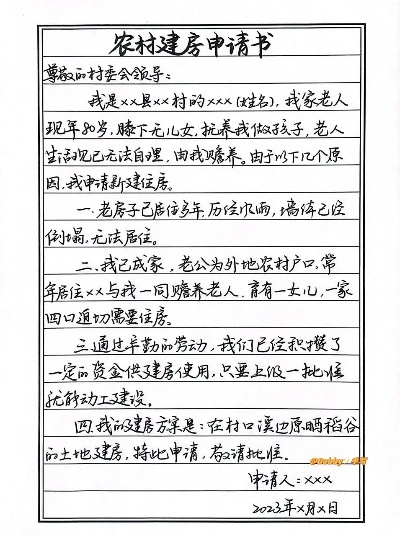 农村建房申请书
尊敬的村委会领导：
我是××县××村的×××(姓名)，我家老人
现年80岁，膝下无儿女，抚养我做孩子，老人
生活现已无法自理，由我赡养。由于以下几个原
因，我申请新建住房。
一.老房子已居住多年，历经风雨，墙体已经
倒塌，无法居住。
二、我已成家，老公为外地农村户口，常
年居住××与我一同赡养老人，育有一女儿，一家
四口迫切需要住房。
三.通过辛勤的劳动，我们已经积攒了
一定的资金供建房使用，只要上级一批准
就能动工建设。
四.我的建房方案是：在村口溪边原晒稻谷
的土地建房，特此申请，敬请批准。
申请人：×××
2023年×月×日